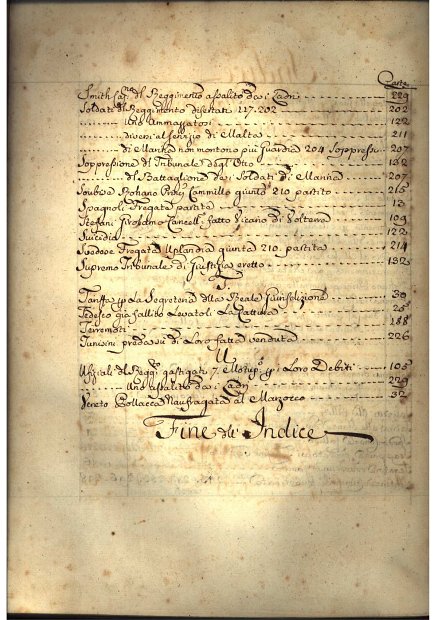 Carte
Smith Cap.ne del Reggimento assalito da i Ladri 229
Soldati di Reggimento disertati 117. 202 202
uno Ammazzatosi 122
diversi al servizio di Malta 211
di Marina non montono più Guardia 204 Soppressi 207
Soppressione del Tribunale degl' Otto 132
del Battaglione de i Soldati di Marina 207
Soubise Rohano Prin.pe Cammillo giunto 210 partito 215
Spagnoli Fregate partite 13
Stefani Girolamo Cancell. fatto Vicario di Volterra 109
Suicidia 122
Svedese Fregata Uplandia giunta 210. partita 214
Supremo Tribunale di Giustizia eretto 132
T
Tariffa p la Segreteria dlla Reale Giurisdizione 30
Tedesco già fallito Levatoli La Cattura 25
Terremoti 188
Tunisini predazsu di Loro fatta venduta 226
U
Uffiziali del Regg. gastigati 7. p i Loro Debiti 105
uno assalito da i Ladri 229
Veneto Pollacca Naufragata al Marzocco 32
Fine dell' Indice